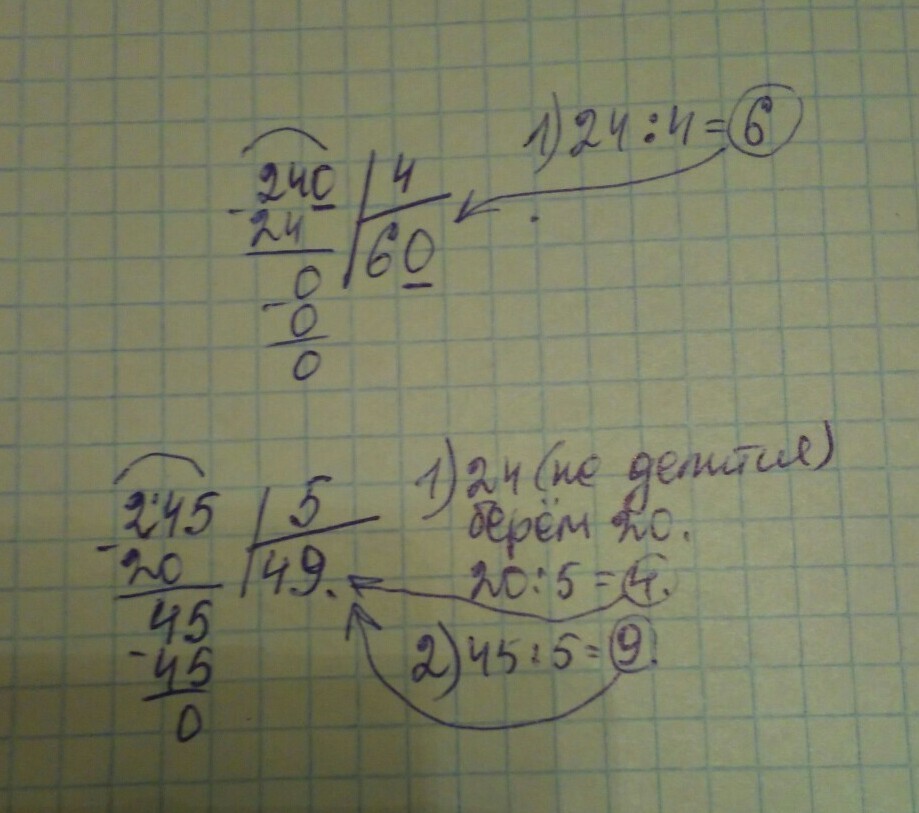 1) 24 : 4 = 6
- 240 | 4
24 | 60
- 0
0
0
1) 24 (не делится)
берём 20.
20 : 5 = 4.
2) 45 : 5 = 9.
- 245 | 5
20 | 49.
45
- 45
0